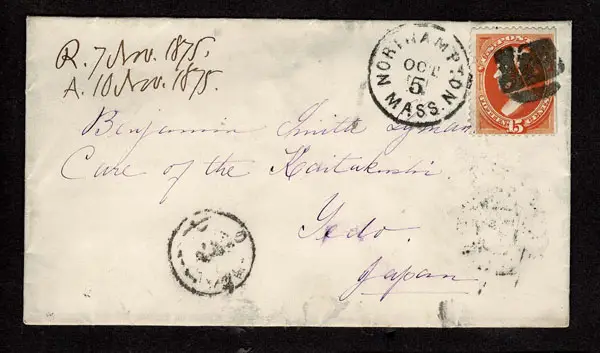 R. 7 Nov. 1875.
A. 10 Nov. 1875.
NORTHAMPTON
OCT
5
MASS.
U.S. POSTAGE
FIFTEEN 15 CENTS.
Benjamin Smith Lyman
Care of the Kaitakushi
Yedo.
Japan.